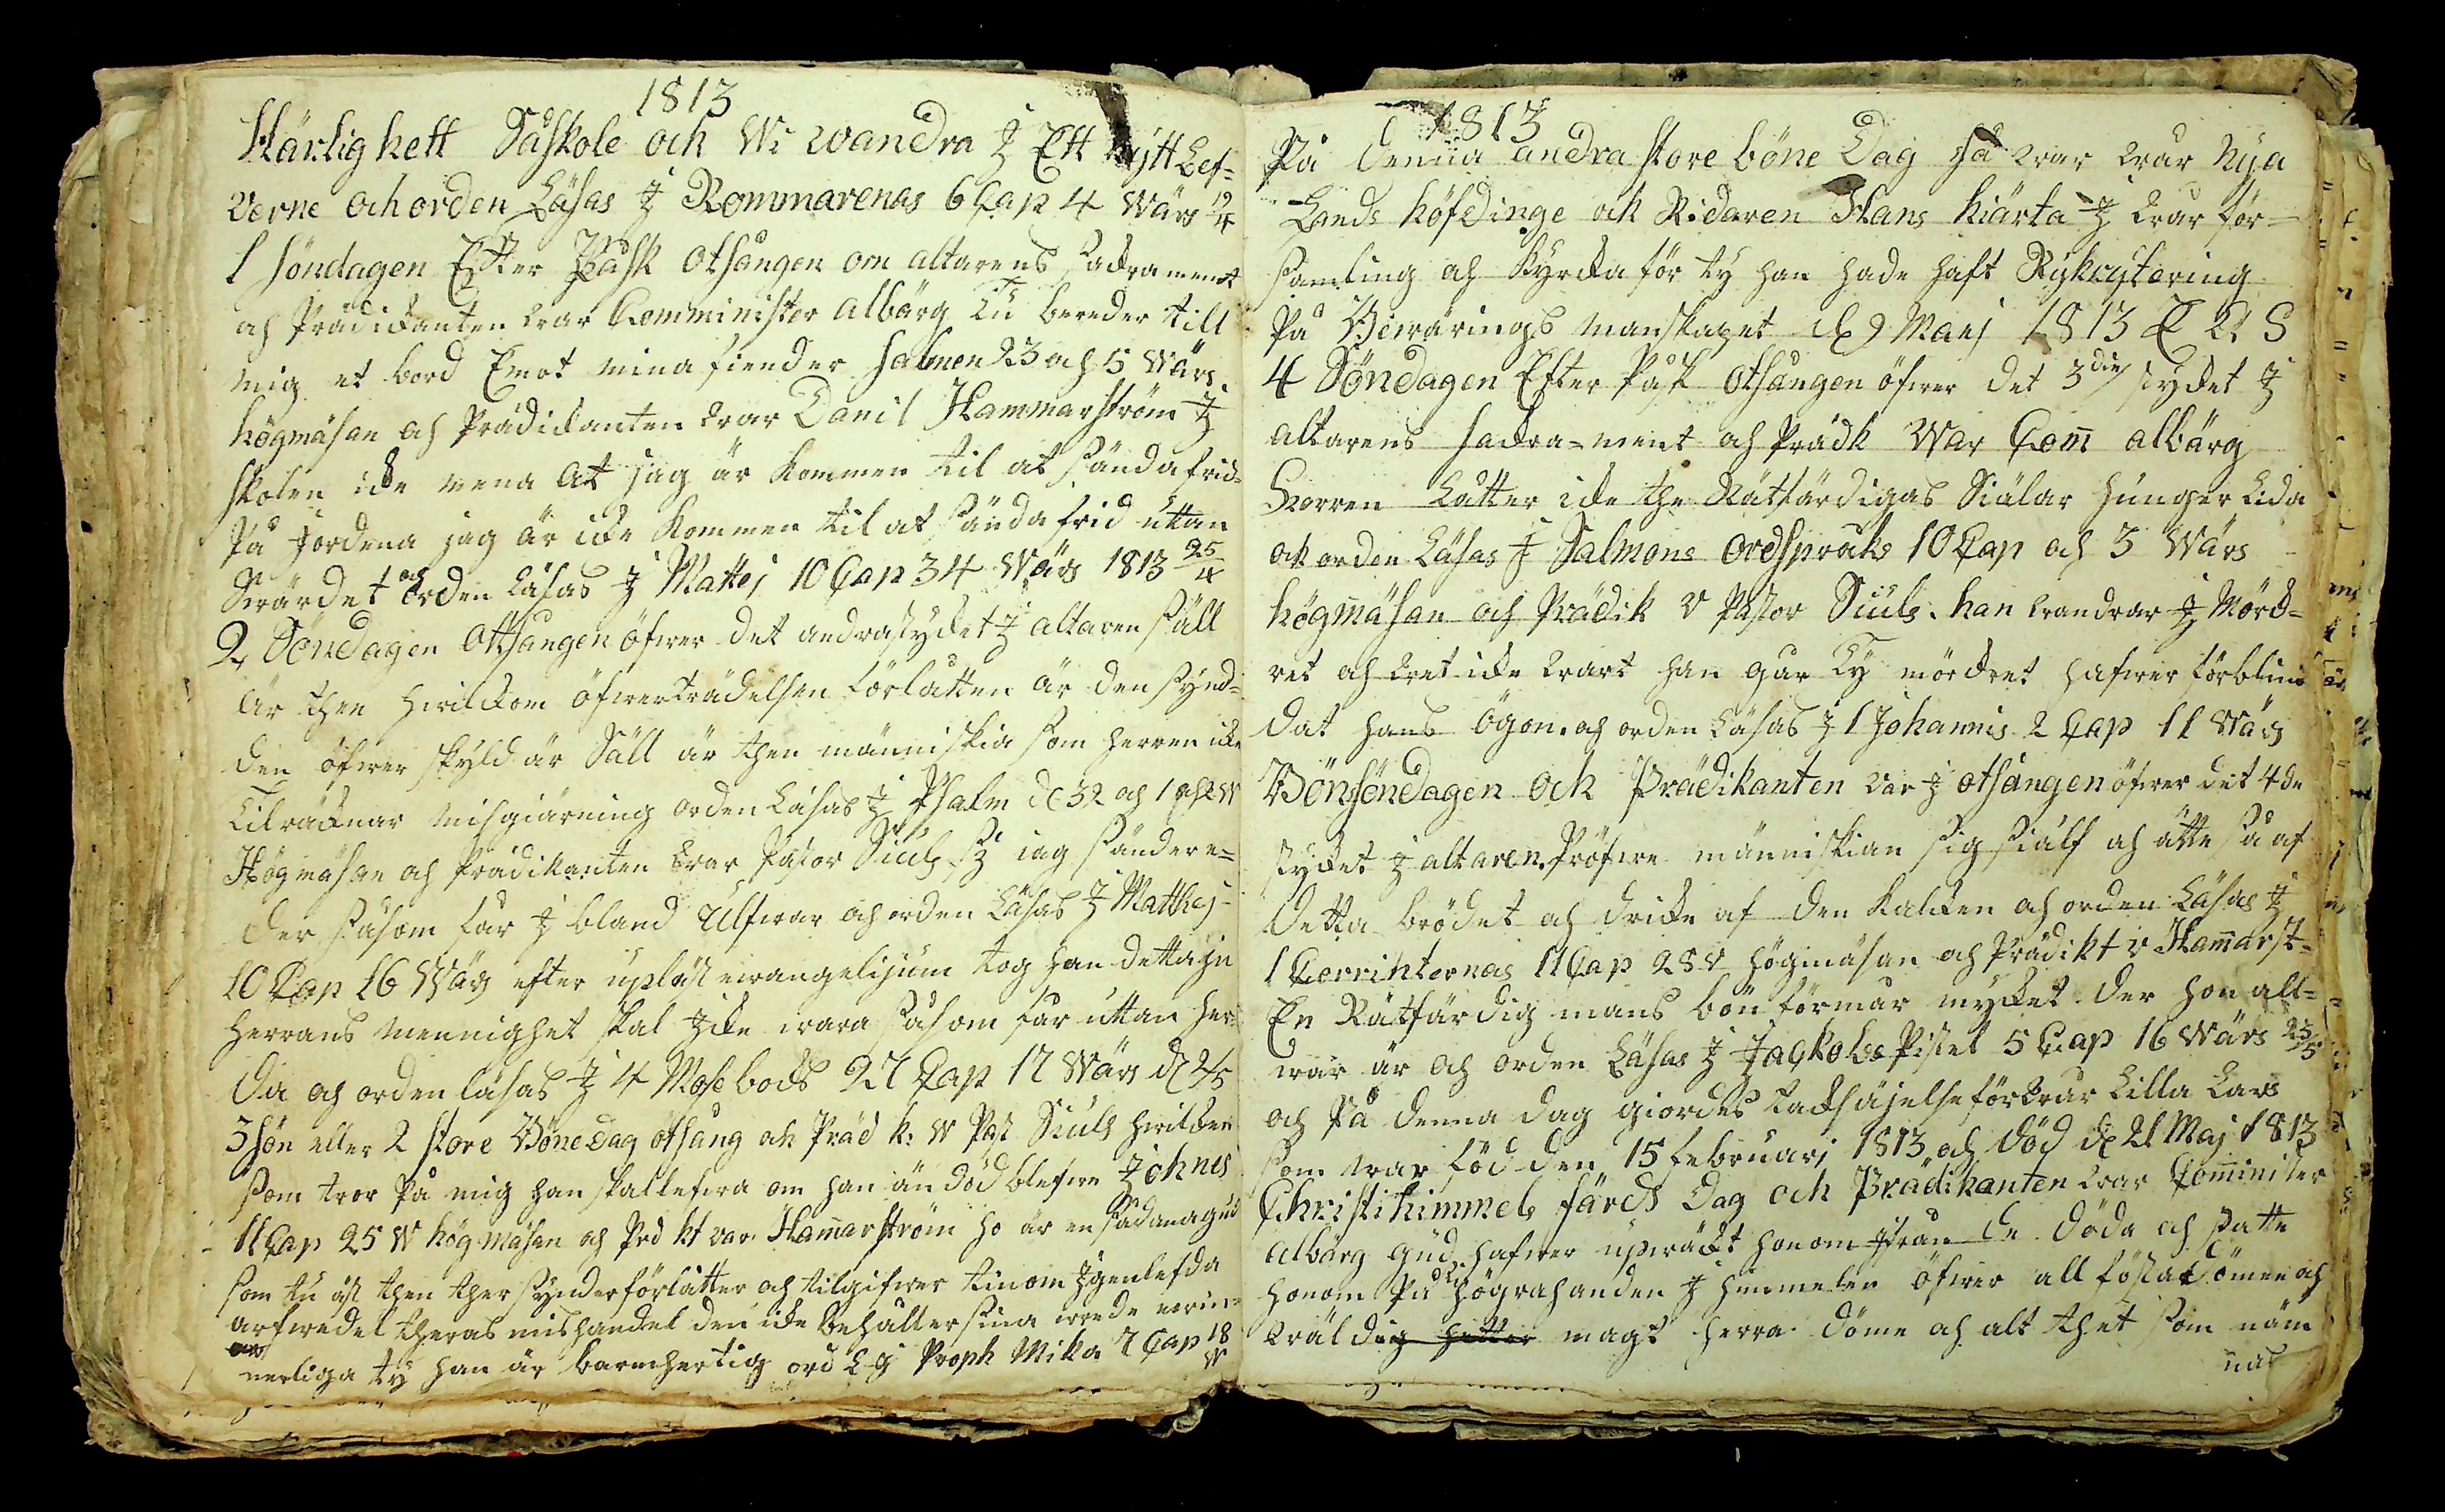 1813
Härlighett Såskole och Wi wandra J Ett nytt Lef=
verne och orden Läsas J Rommarenas 6 Cap 4 Wärs 19/4
1 söndagen Efter Påsk Otsången om altarens sackrament
och Prädickanten war Comminister albärg Tu bereder till
mig et bord Emot mina fiender salmen 23 och 5 Wärs
högmäsan och Prädickanten war Danil Hammarström J
skolen icke mena At jag är kommen til at sända frid=
På Jordena jag är icke kommen til at sända frid uttan
Swärdet och orden Läsas J Mattej 10 Cap 34 Wärs 1813 25/4
2 Söndagen Ottsangen öfwer det andra stycket J altaren säll
är then hwilckom öfwerträdelsen förlatten är den synd=
den öfwer skyld är Säll är then människia som herren icke
Tilräcknar misgiärning orden Läsas J Psalm de 32 och 1 och 2 W
Högmäsan och Prädikanten war Pastor Siuls Si iag sänder e=
der såsom får J bland Ulfwar och orden Läsas J Matthej
10 Cap 16 Wärs efter upläst ewangelijum tog han detta in
herrans mennighet skal Jcke wara såsom får uttan her=
da och orden läsas J 4 Mose bock 27 Cap 17 Wärs d 2/5
3 sön eller 2 store Böne Dag otsång och Präd k: W Past Siuls hwilcken
som tror På mig han skal lefwa om han än död blefwe Johnes
11 Cap 25 W högmäsan och Prd kt var Hammarström ho är en sådana gud
som tu äst then ther synder förlåtter och tilgifwer tinom Jgenlefda
arfwedel theras mishandel den icke behåller sina wrede ewin
nerliga ty han är barmhertig ord L J Proph Mika 7 Cap 18 W
1813
På denna andra store böne Dag så war wår Nya
Lands höfdinge och Ridaren Hans hiärta J wår för=
samling och kyrcka för ty han hade haft Rykrytering
På Bewärings manskapet d 9 Maej 1813
4 Söndagen Efter Påsk otsången öfwer det 3die stycket J
altarens sackra=ment och Prädk War Com albärg
Herren Låtter icke the Rätfärdigas Siälar hunger Lida
och orden Läsas J Salmons ordspråks 10 Cap och 3 Wärs
högmäsan och Prädik v Pastor Siuls. han wandrar J Mörck=
ret och wet icke wart han går Ty mörckret hafwer förblin
dat hans ögon. och orden Läsas J 1 Johannis 2 Cap 11 Wärs
Bönsöndagen Och Prädikanten var J otsången öfwer det 4de
stycket J altaren. Pröfwe människian sig siälf och ätte så af
detta brödet och dricke af den kalcken och orden Läsas J
1 Corrinternas 11 Cap 28 v högmäsan och Prädikt v Hammarst=
En Rätfärdig mans bön förmår mycket der hon all=
war är och orden Läsas J Jackobs Pistel 5 Cap 16 Wärs 23/5
och På denna dag giordes tacksäjelse för wår Lilla Lars
som war föd den 15 februari 1813 och död d 21 Maj 1813
Christi himmels färds Dag och Prädikanten war Comminister
albärg Gud hafwer upwäckt honom Jfrån de döda och satte
honom På högra handen J himmelen öfwer all förstadömen och
wäldig hetter magt herra döme och alt thet som näm
nas